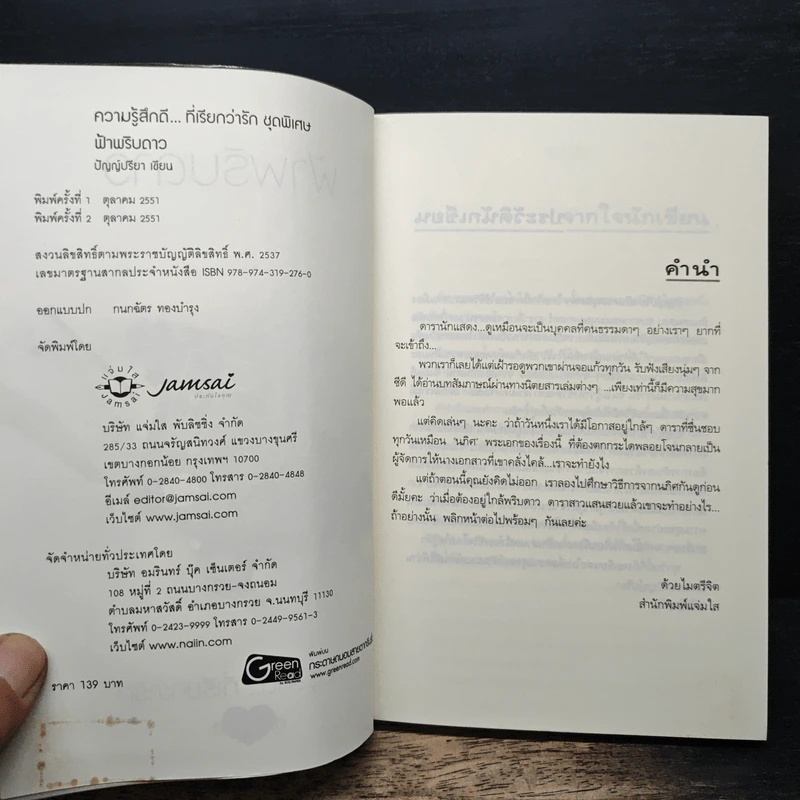 ความรู้สึกดี... ที่เรียกว่ารัก ชุดพิเศษ
ฟ้าพริบดาว
ปัญญ์ปรียา เขียน
พิมพ์ครั้งที่ 1 ตุลาคม 2551
พิมพ์ครั้งที่ 2 ตุลาคม 2551
สงวนลิขสิทธิ์ตามพระราชบัญญัติลิขสิทธิ์ พ.ศ. 2537
เลขมาตรฐานสากลประจำหนังสือ ISBN 978-974-319-276-0
ออกแบบปก กนกฉัตร ทองบำรุง
จัดพิมพ์โดย
แจ่มใส
Jamsai
Jamsai
บริษัท แจ่มใส พับลิชชิ่ง จำกัด
285/33 ถนนจรัญสนิทวงศ์ แขวงบางขุนศรี
เขตบางกอกน้อย กรุงเทพฯ 10700
โทรศัพท์ 0-2840-4800 โทรสาร 0-2840-4848
อีเมล์ editor@jamsai.com
เว็บไซต์ www.jamsai.com
จัดจำหน่ายทั่วประเทศโดย
บริษัท อมรินทร์ บุ๊ค เซ็นเตอร์ จำกัด
108 หมู่ที่ 2 ถนนบางกรวย-จงถนอม
ตำบลมหาสวัสดิ์ อำเภอบางกรวย จ.นนทบุรี 11130
โทรศัพท์ 0-2423-9999 โทรสาร 0-2449-9561-3
เว็บไซต์ www.naiin.com
Green
Read
พิมพ์บน
กระดาษถนอมสายตากรีนรีด
www.greenread.com
ราคา 139 บาท
คำนำ
ดารานักแสดง...ดูเหมือนจะเป็นบุคคลที่คนธรรมดาๆ อย่างเราๆ ยากที่
จะเข้าถึง...
พวกเราก็เลยได้แต่เฝ้ารอดูพวกเขาผ่านจอแก้วทุกวัน รับฟังเสียงนุ่มๆ จาก
ซีดี ได้อ่านบทสัมภาษณ์ผ่านทางนิตยสารเล่มต่างๆ ...เพียงเท่านี้ก็มีความสุขมาก
พอแล้ว
แต่คิดเล่นๆ นะคะ ว่าถ้าวันหนึ่งเราได้มีโอกาสอยู่ใกล้ๆ ดาราที่ชื่นชอบ
ทุกวันเหมือน 'นภิศ' พระเอกของเรื่องนี้ ที่ต้องตกกระไดพลอยโจนกลายเป็น
ผู้จัดการให้นางเอกสาวที่เขาคลั่งไคล้...เราจะทำยังไง
แต่ถ้าตอนนี้คุณยังคิดไม่ออก เราลองไปศึกษาวิธีการจากนภิศกันดูก่อน
ดีมั้ยคะ ว่าเมื่อต้องอยู่ใกล้พริบดาว ดาราสาวแสนสวยแล้วเขาจะทำอย่างไร...
ถ้าอย่างนั้น พลิกหน้าต่อไปพร้อมๆ กันเลยค่ะ
ด้วยไมตรีจิต
สำนักพิมพ์แจ่มใส